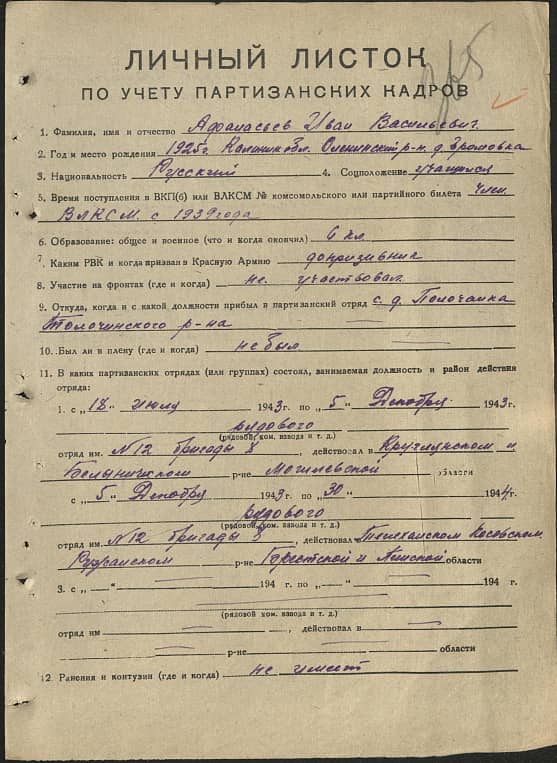 965
ЛИЧНЫЙ ЛИСТОК
ПО УЧЕТУ ПАРТИЗАНСКИХ КАДРОВ
1. Фамилия, имя и отчество Афанасьев Иван Васильевич.
2. Год и место рождения 1925г. Калининобл. Оленинский р-н. д. Громовка
3. Национальность Русский 4. Соцположение учащийся
5. Время поступления в ВКП(б) или ВЛКСМ № комсомольского или партийного билета член
ВЛКСМ с 1939 года
6. Образование: общее и военное (что и когда окончил) 6 кл
7. Каким РВК и когда призван в Красную Армию допризывник
8. Участие на фронтах (где и когда) не участвовал
9. Откуда, когда и с какой должности прибыл в партизанский отряд с д.
Толочинского р-на
10. Был ли в плену (где и когда) не был
11. В каких партизанских отрядах (или группах) состоял, занимаемая должность и район действия
отряда:
1. с „18“ июля 1943 г. по „5“ Декабря 1943 г.
рядового
(рядовой, ком. взвода и т. д.)
отряд им. №12 бригады 8, действовал в Круглянском и
Белыничском р-не Могилевской области
с „5“ Декабря 1943 г. по „30“ 1944 г.
рядового
(рядовой, ком. взвода и т. д.)
отряд им. №12 бригады 8, действовал Телеханском Косовском
Ружанском р-не Брестской и Пинской области
3. с „ — “ 194 г. по „ — “ 194 г.
(рядовой ком. взвода и т. д.)
отряд им , действовал в
р-не области
12. Ранения и контузии (где и когда) не имеет